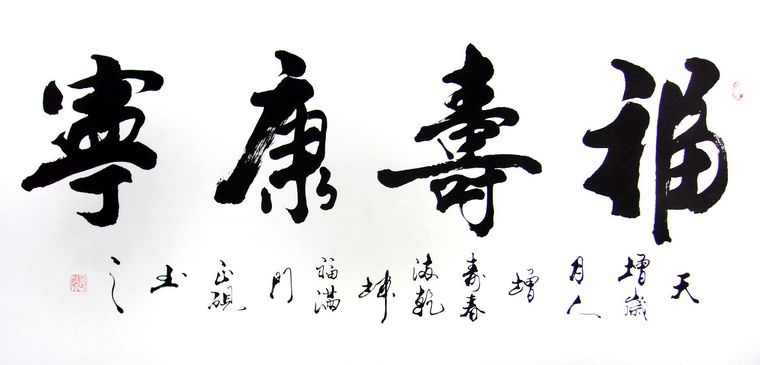 福壽康寧
天增歲月人增壽春滿乾坤福滿門正硯書之